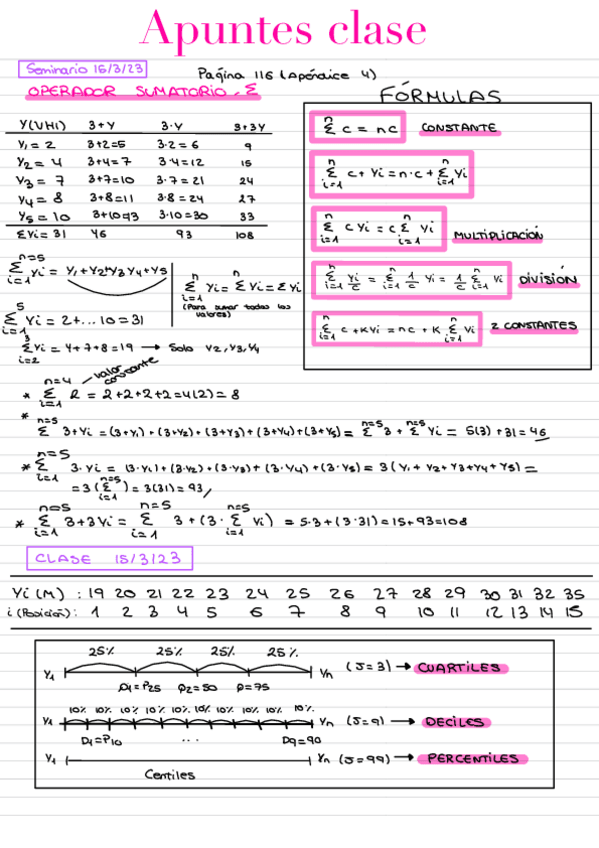 Apuntes clase
Seminario 16/3/23
Página 116 (Apéndice 4)
OPERADOR SUMATORIO - Σ
Y(VHI) 3+Y 3·Y 3+3Y
Y₁ = 2 3+2=5 3·2=6 9
Y₂ = 4 3+4=7 3·4=12 15
Y₃ = 7 3+7=10 3·7=21 24
Y₄ = 8 3+8=11 3·8=24 27
Y₅ = 10 3+10=13 3·10=30 33
ΣYi = 31 46 93 108
n=5 Σ i=1 Yi = Y₁+Y₂+Y₃ Y₄+Y₅
n Σ i=1 Yi = n Σ Yi = Σ Yi
(Para sumar todos los valores)
5 Σ i=1 Yi = 2+...10=31
3 Σ i=2 Yi = 4+7+8=19 → Solo Y₂, Y₃, Y₄
FÓRMULAS
n Σ i=1 c = nc CONSTANTE
n Σ i=1 c + Yi = n·c + n Σ i=1 Yi
n Σ i=1 c Yi = c n Σ i=1 Yi MULTIPLICACIÓN
n Σ i=1 Yi/c = n Σ i=1 1/c Yi = 1/c n Σ i=1 Yi DIVISIÓN
n Σ i=1 c + KYi = nc + K n Σ i=1 Yi 2 CONSTANTES
* n=4 Σ i=1 2 = 2+2+2+2=4(2)=8
valor constante
* n=5 Σ i=1 3+Yi = (3+Y₁)+(3+Y₂)+(3+Y₃)+(3+Y₄)+(3+Y₅) = n=5 Σ i=1 3 + n=5 Σ i=1 Yi = 5(3)+31=46
* n=5 Σ i=1 3·Yi = (3·Y₁)+(3·Y₂)+(3·Y₃)+(3·Y₄)+(3·Y₅) = 3(Y₁+Y₂+Y₃+Y₄+Y₅) =
= 3(n=5 Σ i=1) = 3(31) = 93
* n=5 Σ i=1 3+3Yi = n=5 Σ i=1 3 + (3· n=5 Σ i=1 Yi) = 5·3+(3·31)=15+93=108
CLASE 15/3/23
Yi (M) : 19 20 21 22 23 24 25 26 27 28 29 30 31 32 35
i (Posición): 1 2 3 4 5 6 7 8 9 10 11 12 13 14 15
25% 25% 25% 25%
Y₁ Yn (J=3) → CUARTILES
Q1=P25 Q2=50 Q=75
10% 10% 10% 10% 10% 10% 10% 10% 10% 10%
Y₁ Yn (J=9) → DECILES
D1=P10 ... D9=90
Y₁ Yn (J=99) → PERCENTILES
Centiles